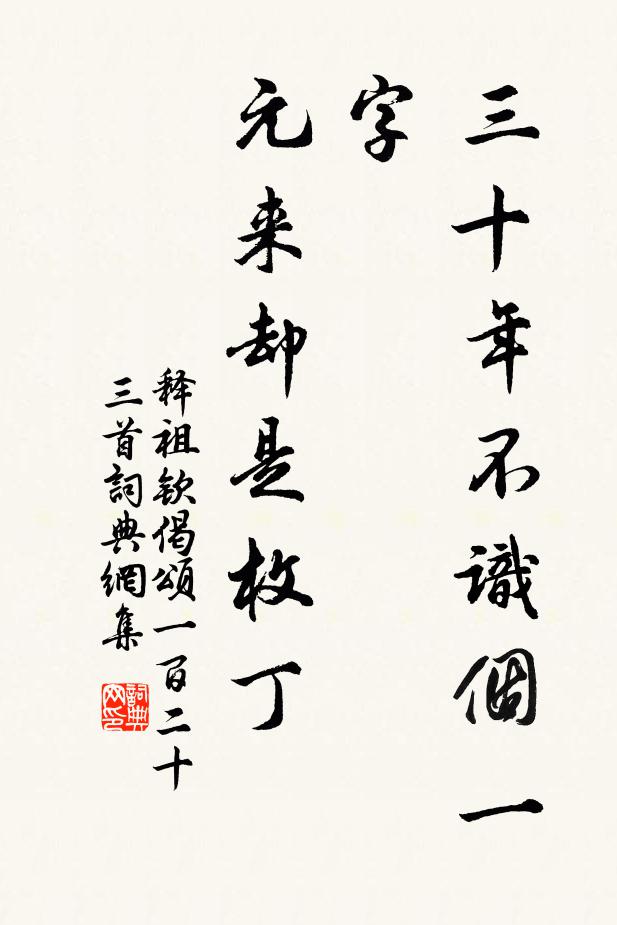 三十年不識個一
字
元来却是枚丁
释祖钦偈頌一百二十
三首詞典網集
詞典
网印